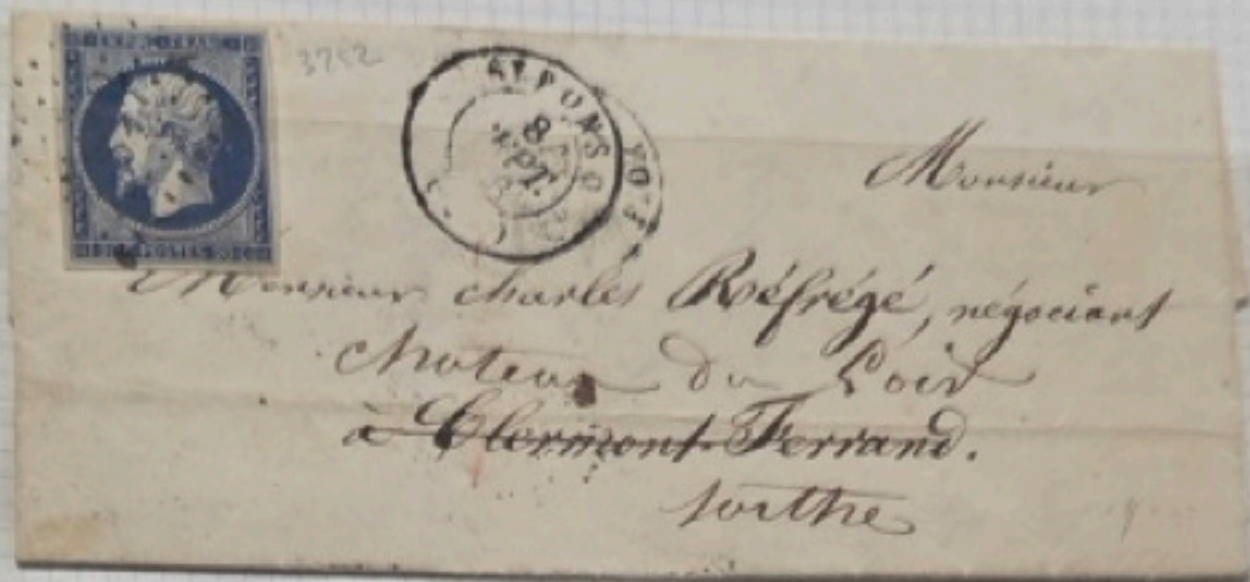 3752
ST. PONS
8
SEPT.
Monsieur
Monsieur Charles Réfrégé, négociant
Chateau du Loir
à Clermont-Ferrand.
Sarthe